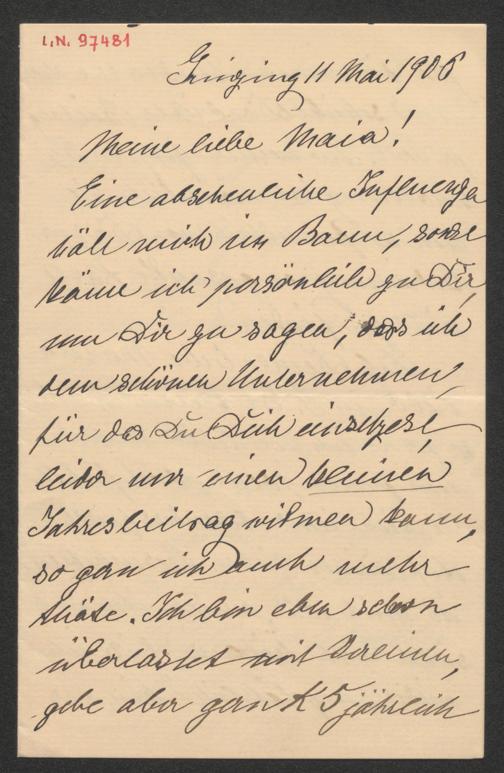 I.N. 97481
Grinzing 11 Mai 1906
Meine liebe Maia!
Eine abscheuliche Influenza
hält mich im Bann, sonst
käme ich persönlich zu Dir,
um Dir zu sagen, dass ich
dem schönen Unternehmen,
für das Du Dich einsetzest,
leider nur einen kleinen
Jahresbeitrag widmen kann,
so gern ich auch mehr
thäte. Ich bin eben schon
überlastet mit Vereinen,
gebe aber gern K 5 jährlich